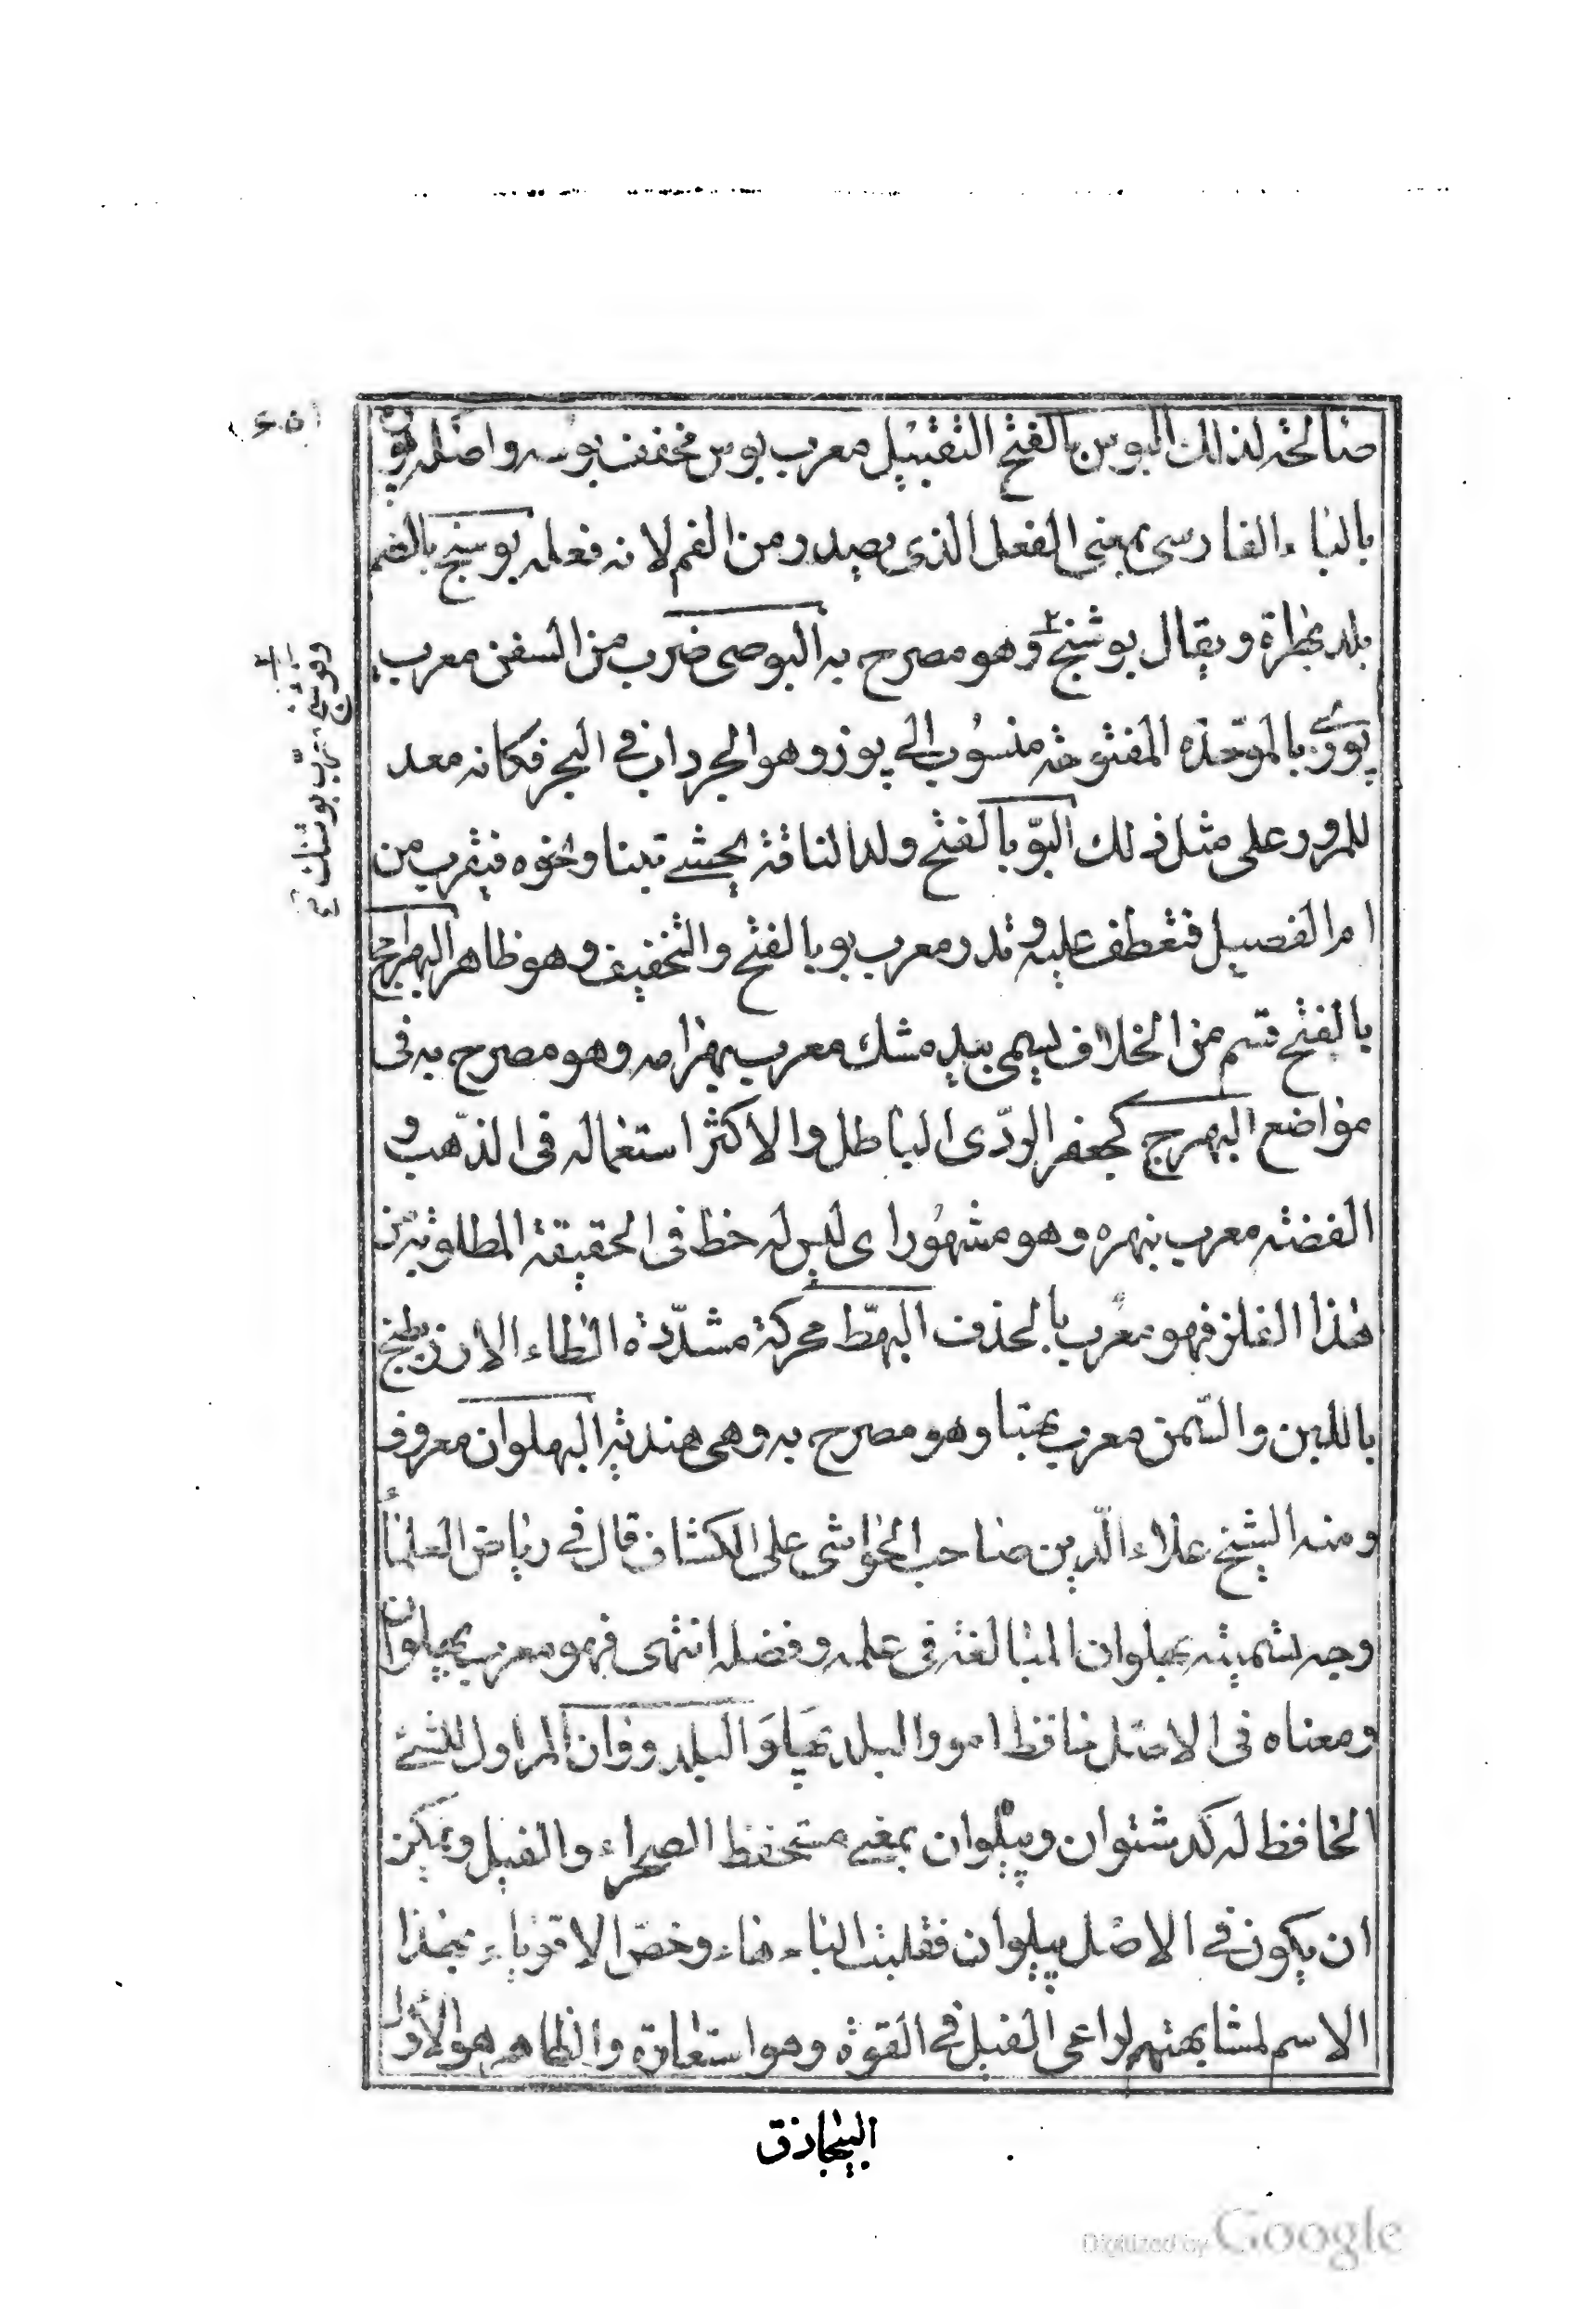 صالحة لذلك البوس بالفتح التقبيل معرب بوس مخفف بوسه واصله پو
بالباء الفارسى بمعنى الفعل الذى يصدر من الفم لانه فعله بوسنج بالضم
بلد بهراة ويقال بوشنج وهو مصرح به البوصى ضرب من السفن معرب
پوزى بالموحدة المفتوحة منسوب الى پوز وهو الجرداب فى البحر فكانه معد
للمرور على مثل ذلك البو بالفتح ولد الناقة يحشى تبنا ونحوه فيقرب من
ام الفصيل فتعطف عليه وتدر معرب بو بالفتح والتخفيف وهو ظاهر البهرامج
بالفتح قسم من الخلاف يسمى بيدمشك معرب بهرامه وهو مصرح به فى
مواضع البهرج كجعفر الردى الباطل والاكثر استعماله فى الذهب و
الفضة معرب نبهره وهو مشهور اى ليس له حظ فى الحقيقة المطلوبة من
هذا الفلز فهو معرب بالحذف البهط محركة مشددة الطاء الارز يطبخ
باللبن والسمن معرب بهتا وهو مصرح به وهى هندية البهلوان معروف
ومنه الشيخ علاء الدين صاحب الحواشى على الكشاف قال فى رياض العلماء
وجه تسميته بهلوان المبالغة فى علمه وفضله انتهى فهو معرب پهلوان
ومعناه فى الاصل حافظ امور البلد پهلو البلد ووان المراول للشئ
الحافظ له كدشتوان وپيلوان بمعنى مستحفظ الصحراء والفيل ويمكن
ان يكون فى الاصل پيلوان فقلبت الياء هاء وخص الاقوياء بهذا
الاسم لمشابهتهم لراعى الفيل فى القوة وهو استعارة والظاهر هو الاول
البيجاذق
وفوشنج معرب بوشنك
Digitized by Google